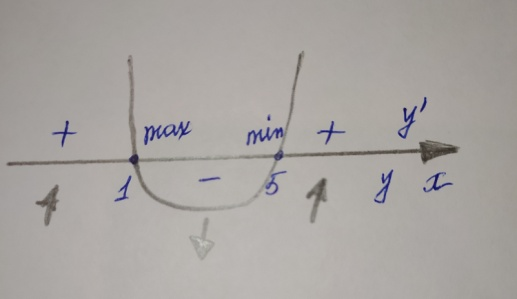 + max min + y'
1 − 5 y x